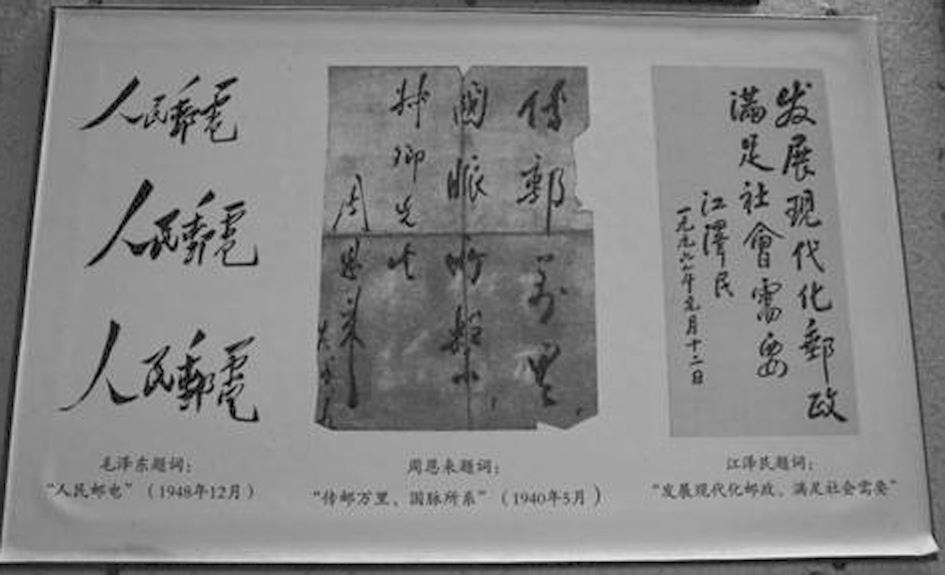 人民郵電
人民郵電
人民郵電
毛泽东题词：
“人民邮电”（1948年12月）
傳郵万里
國脈所繫
卿先生
周恩来
周恩来题词：
“传邮万里、国脉所系”（1940年5月）
发展現代化郵政
满足社會需要
江澤民
一九九六年元月十二日
江泽民题词：
“发展现代化邮政、满足社会需要”